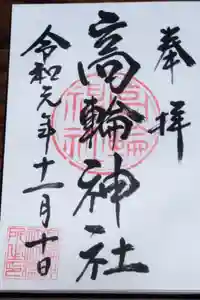 奉拝
高輪神社
令和元年十一月十日